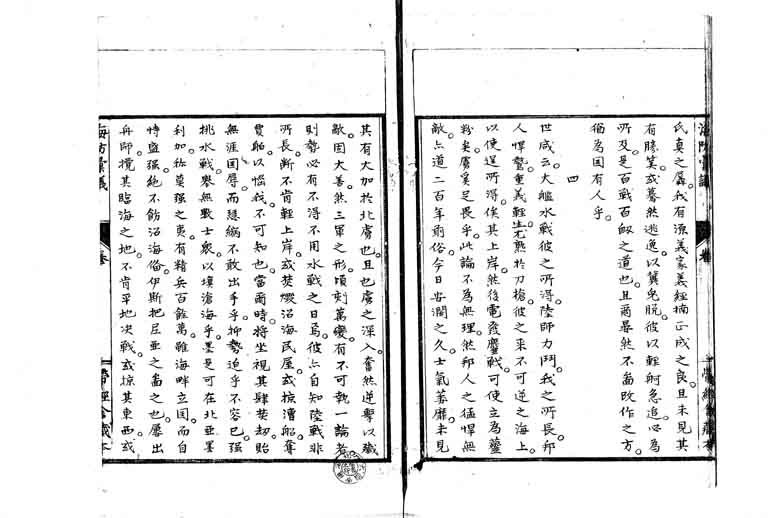 氏真之孱我有源義家義經楠正成之良且未見其
有勝筭或驀然逃逸以冀兔脫彼以輕舸急追必為
所及是百戰百衂之道也且胥晏然不啚改作之方
猶為國有人乎
四
世咸云大艦水戰彼之所得陸師力鬥我之所長邦
人悍驁重義輕生尤熟於刀槍彼之來不可逆之海上
以使逞所得俟其上岸然後電發鏖戰可使立為虀
粉來虜奚足畏乎此論不為無理然邦人之猛悍無
敵亦道二百年前俗今日安瀾之久士氣萎靡未見
其有大加於北虜也且也虜之深入奮然逆擊以殲
敵固大善然三軍之形頃刻萬變有不可執一論者
則勢必有不得不用水戰之日焉彼亦自知陸戰非
所長斷不肯輕上岸或焚燬沿海民屋或掠漕船奪
賈舶以惱我不可知也當爾時將坐視其肆焚劫貽
無涯國辱而隱縮不敢出手乎抑勢迫乎不容已强
挑水戰舉無數士衆以塡滄海乎墨是可在北亞墨
利加称莫强之夷有精兵百餘萬雖海畔立國而自
恃盛强絕不飭沿海俻伊斯把尼亞之啚之也屢出
舟師攪其臨海之地不肯平地决戰或掠其東西或
海防彙議
卷